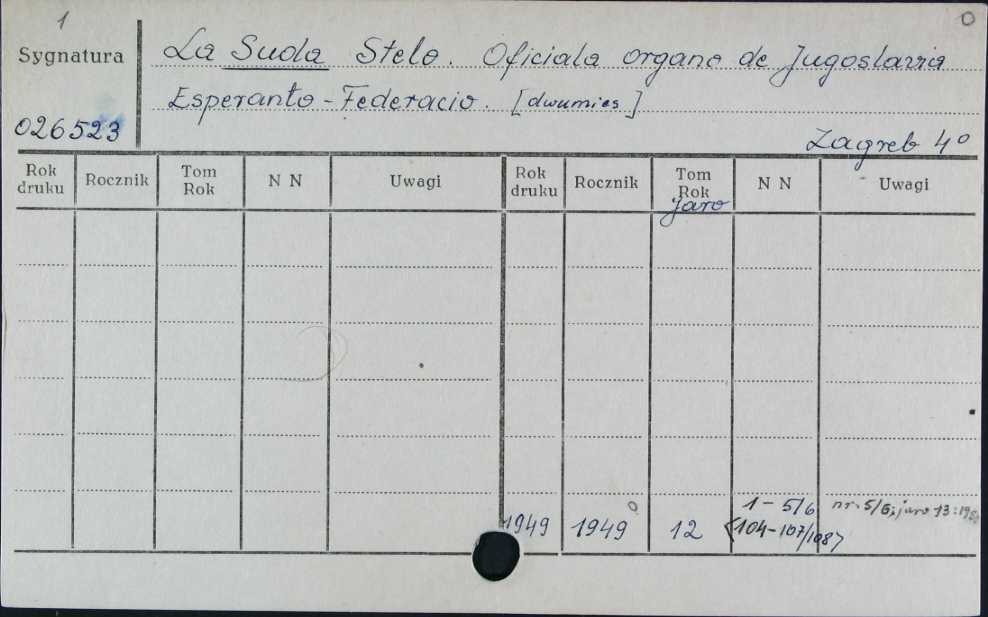 1 0
Sygnatura
La Suda Stelo. Oficiala organo de Jugoslavia
Esperanto-Federacio. [dwumies]
026523
Zagreb 4º
Rok druku Rocznik Tom Rok N N Uwagi Rok druku Rocznik Tom Rok jaro N N Uwagi
1949 1949 0 12 1 - 5/6 nr. 5/6; jaro 13:
<104-107/108>